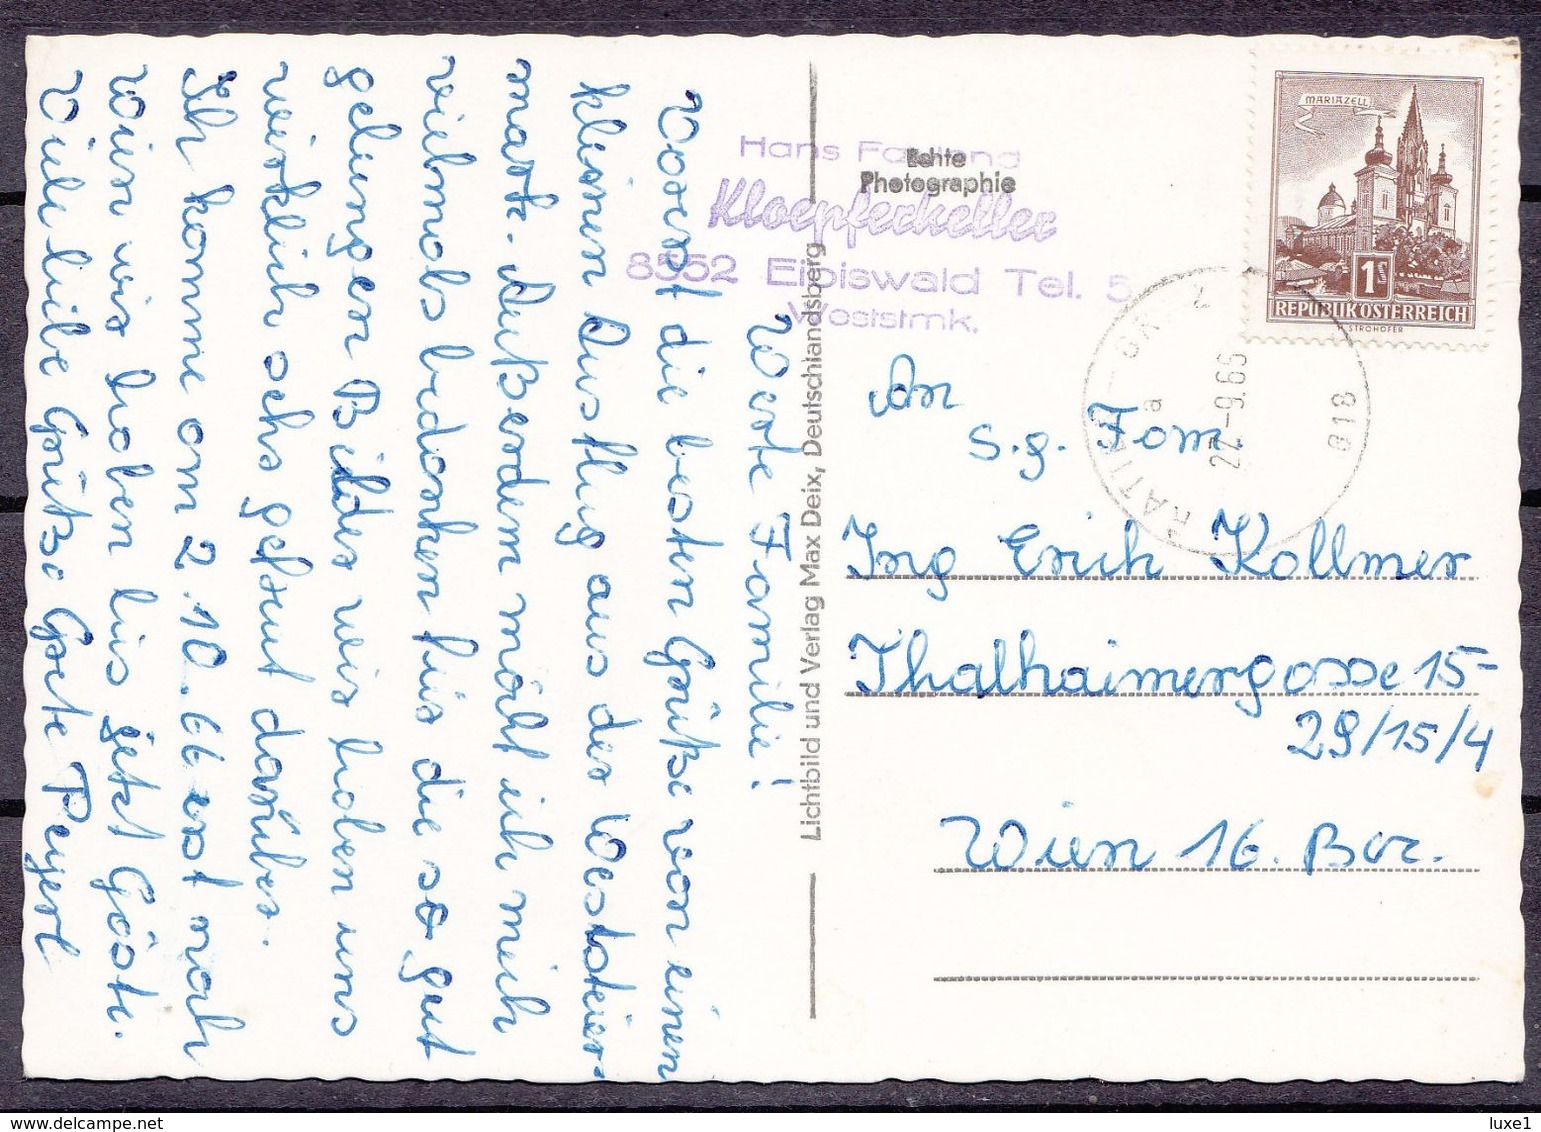 Werte Familie!
Vorerst die besten Grüße von einen
kleinen Ausflug aus der Weststeier
mark. Außerdem möcht ich mich
vielmals bedanken für die so gut
gelungen Bilder wir haben uns
wirklich sehr gefreut darüber.
Ich komme am 2.10.66 erst nach
Wien wir haben bis jetzt Gäste.
Viele liebe Grüße Grete Peyerl
Hans
Echte
Photographie
Kloepferkeller
8552 Eibiswald Tel. 5
Weststmk.
Lichtbild und Verlag Max Deix, Deutschlandsberg
MARIAZELL
1S
REPUBLIK ÖSTERREICH
STROHOFER
22.-9.66
a
An
S.g. Fam
Ing Erich Kollmer
Thalhaimergasse 15-
29/15/4
Wien 16. Bez.
luxe1